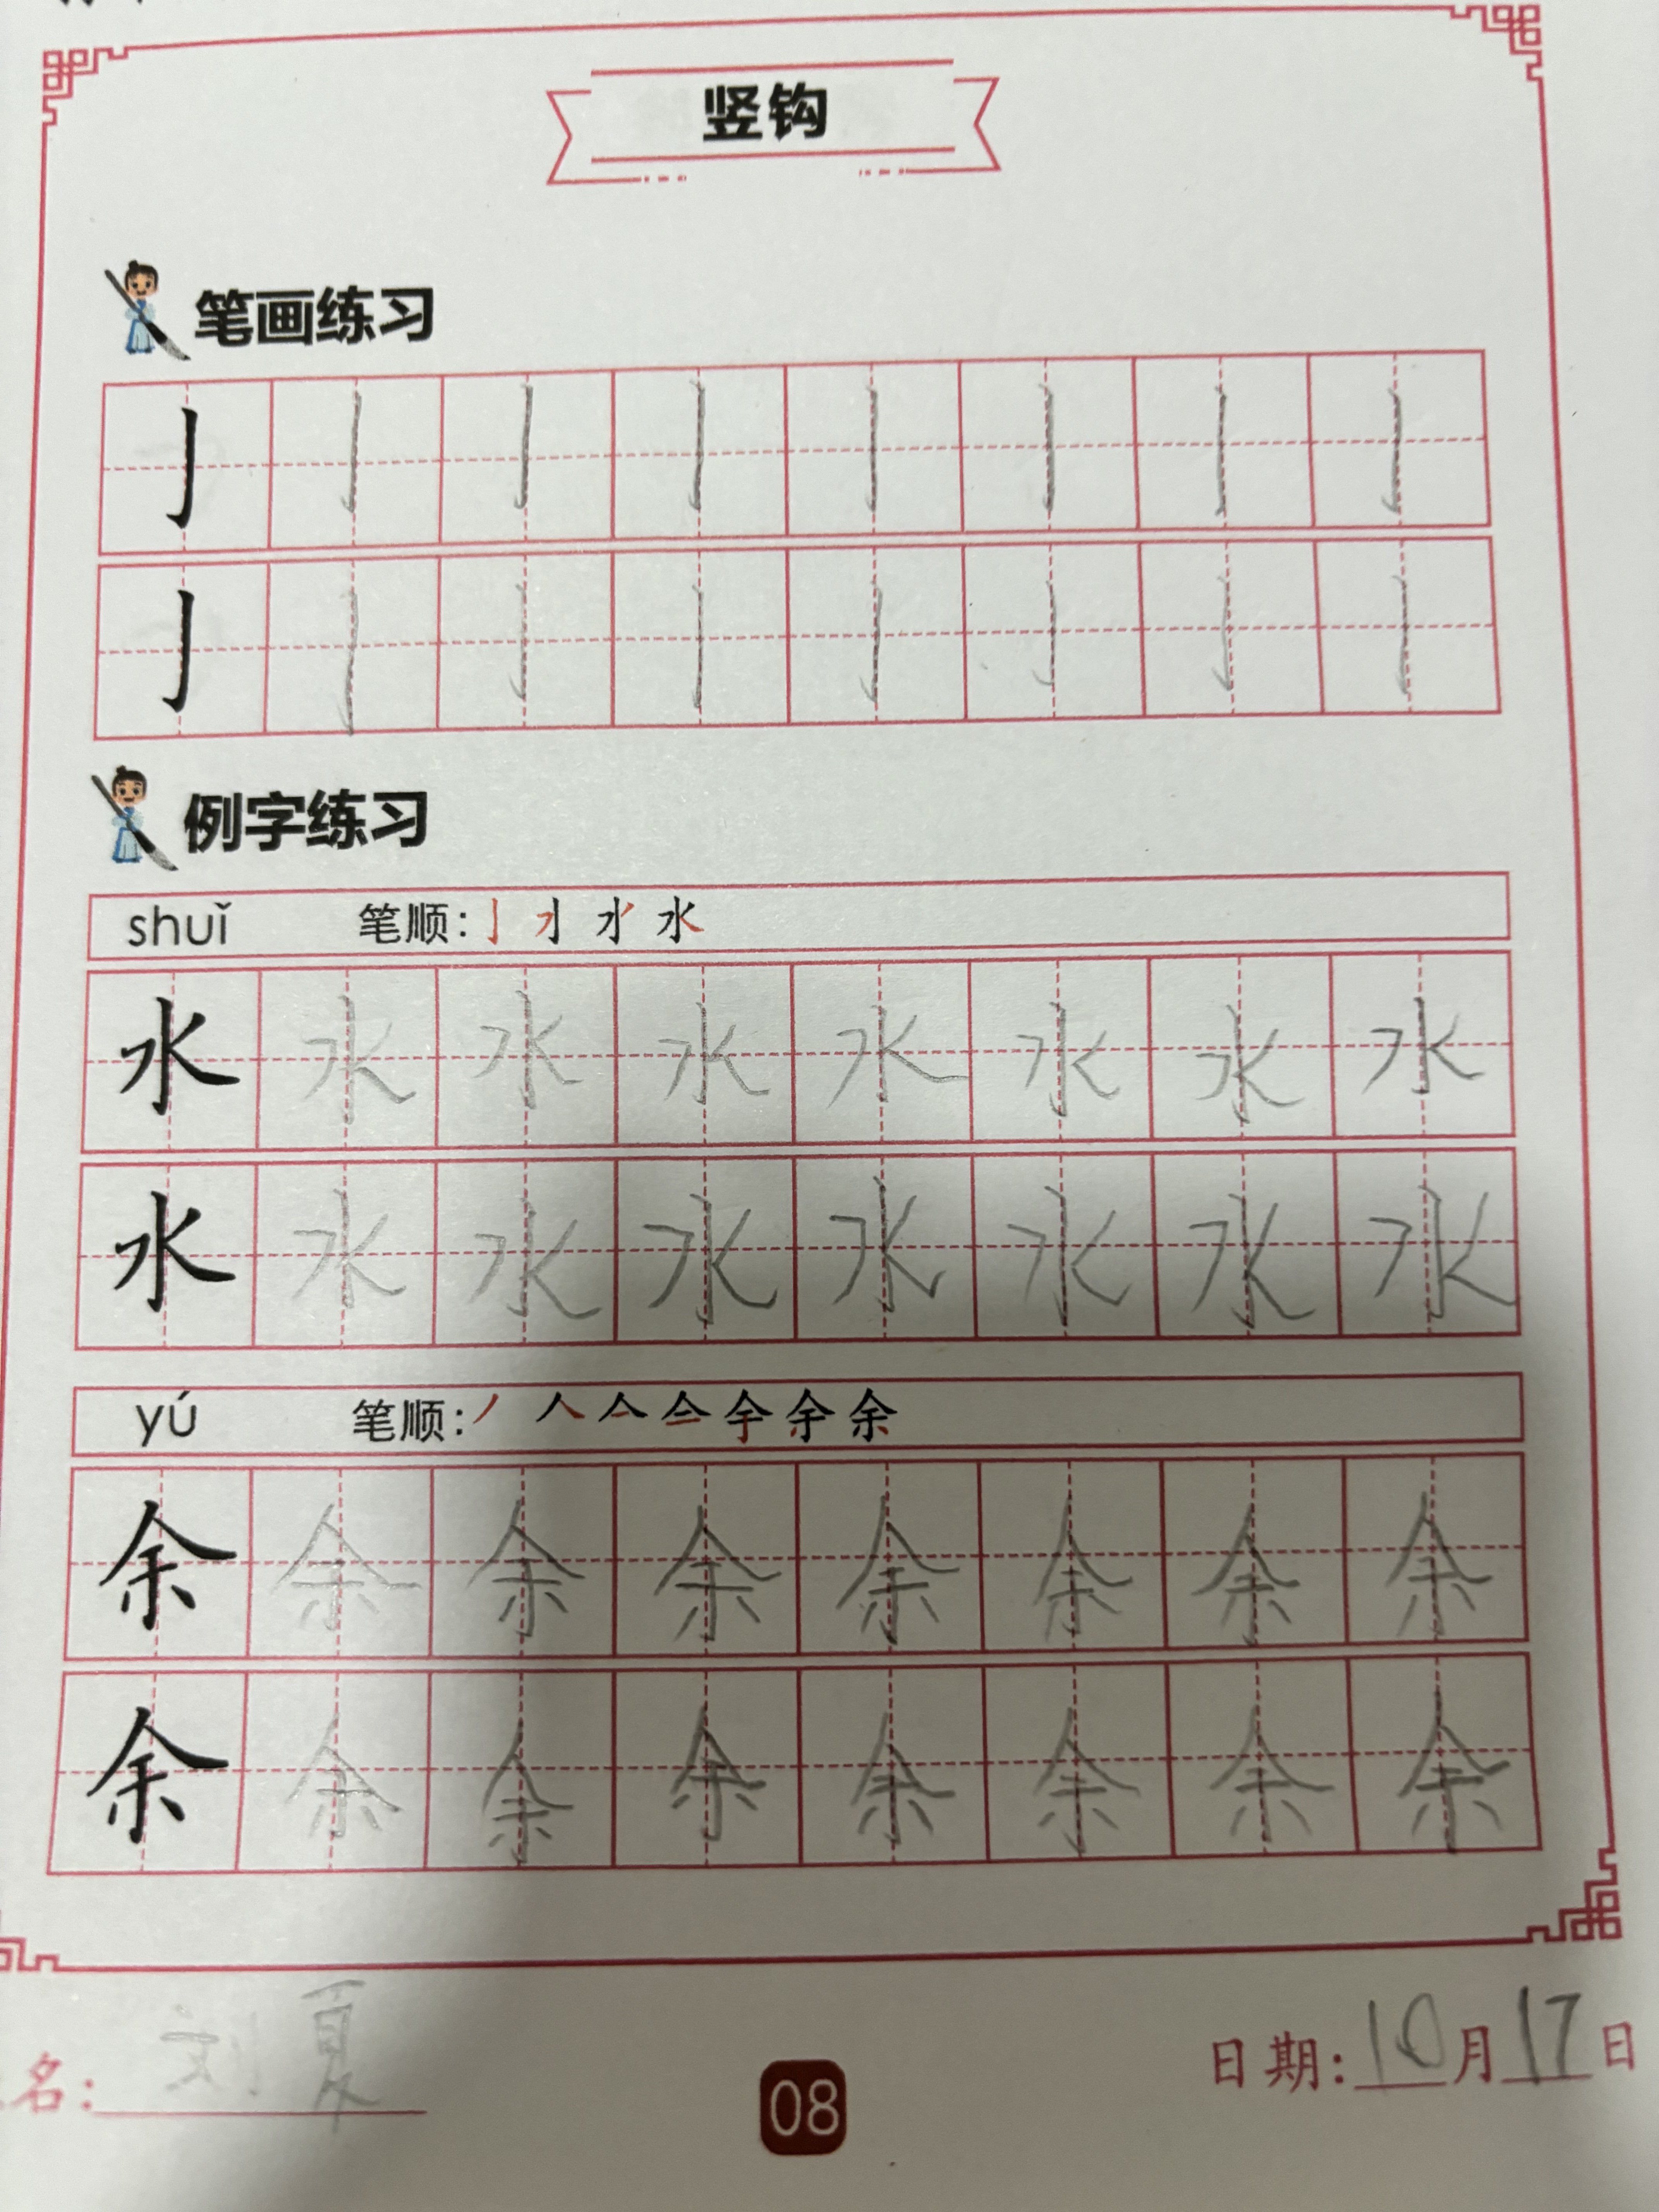 竖钩
笔画练习
亅 亅 亅 亅 亅 亅 亅 亅
亅 亅 亅 亅 亅 亅 亅 亅
例字练习
shuǐ 笔顺: 水
水 水 水 水 水 水 水 水
水 水 水 水 水 水 水 水
yú 笔顺: 丿 人 亼 亽 余
余 余 余 余 余 余 余 余
余 余 余 余 余 余 余 余
名: 刘夏 日期: 10月17日
08